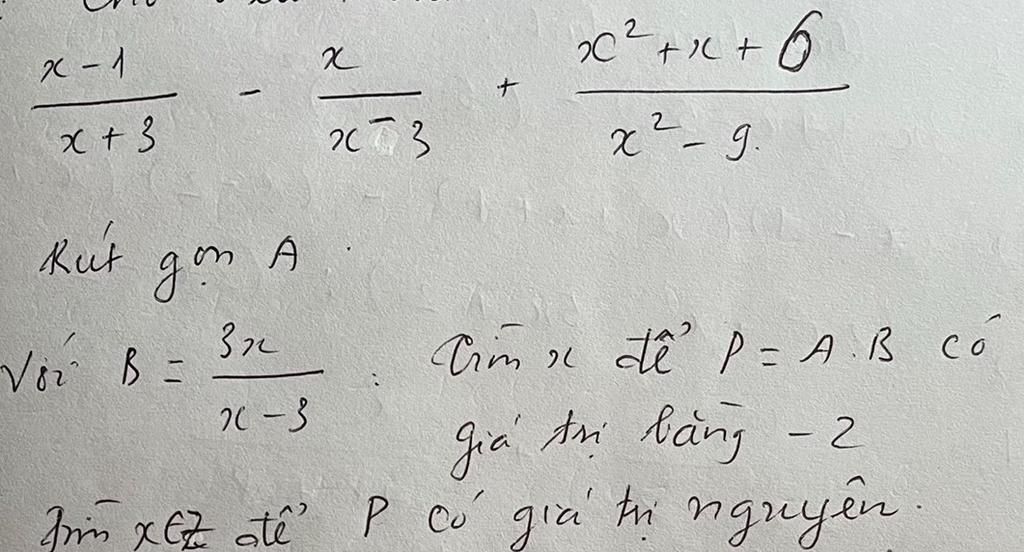 x - 1 / x + 3 - x / x - 3 + x² + x + 6 / x² - 9.
Rút gọn A.
Với B = 3x / x - 3 : Tìm x để P = A.B có
giá trị bằng - 2
Tìm x ∈ Z để P có giá trị nguyên.